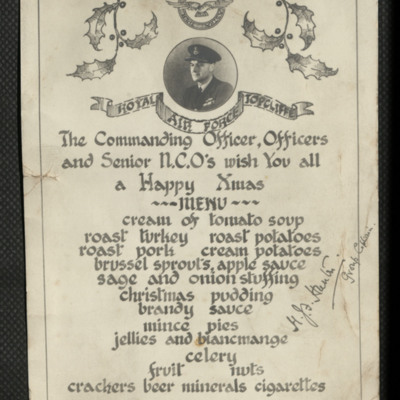 ROYAL AIR FORCE TOPCLIFFE
The Commanding Officer, Officers
and Senior N.C.O's wish You all
a Happy Xmas
~~~MENU~~~
cream of tomato soup
roast turkey roast potatoes
roast pork cream potatoes
brussel sprouts, apple sauce
sage and onion stuffing
christmas pudding
brandy sauce
mince pies
jellies and blancmange
celery
fruit nuts
crackers beer minerals cigarettes
Group Captain.